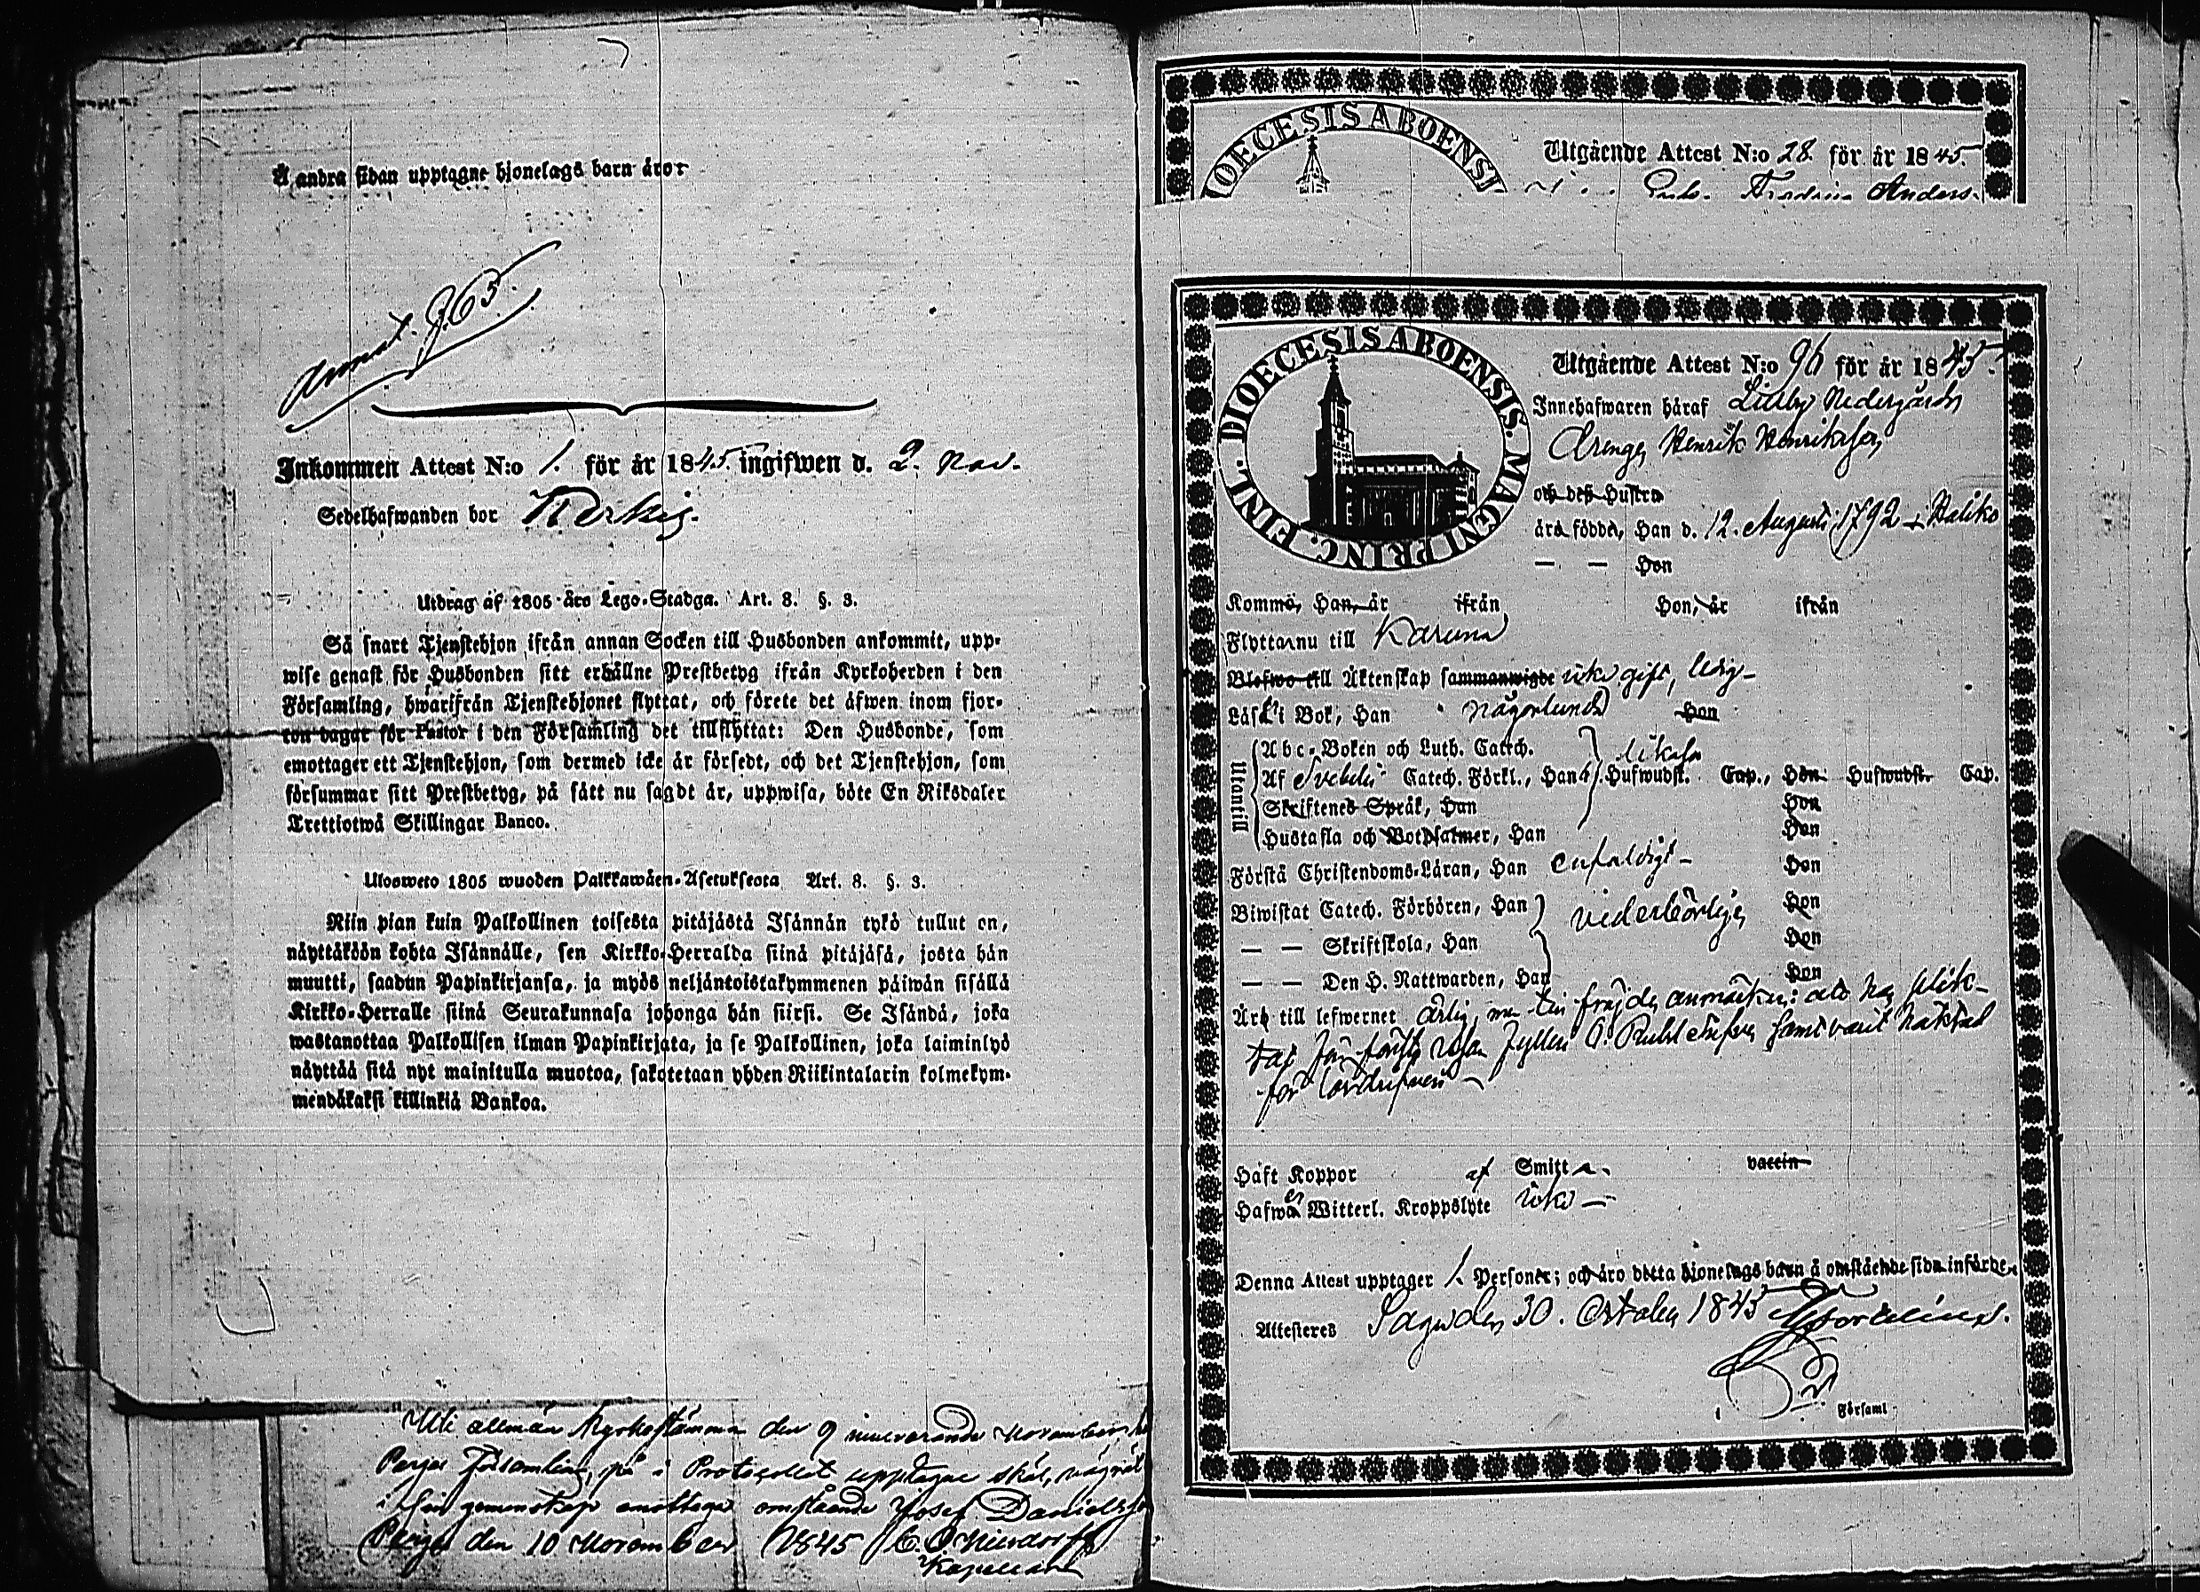 Å andra sidan upptagne hjonelags barn äro:
Annot. p. 65.
Inkommen Attest N:o 1. för år 1845. ingifwen d. 2. Nov.
Sedelhafwanden bor
Utdrag af 1805 års Lego-Stadga. Art. 8. §. 3.
Så snart Tjenstehjon ifrån annan Socken till Husbonden ankommit, upp-
wise genast för Husbonden sitt erhållne Prestbetyg ifrån Kyrkoherden i den
Församling, hwarifrån Tjenstehjonet flyttat, och förete det äfwen inom fjor-
ton dagar för Pastor i den Församling det tillflyttat: Den Husbonde, som
emottager ett Tjenstehjon, som dermed icke är försedt, och det Tjenstehjon, som
försummar sitt Prestbetyg, på sätt nu sagdt är, uppwisa, böte En Riksdaler
Trettiotwå Skillingar Banco.
Ulosweto 1805 wuoden Palkkawäen-Asetuksesta Art. 8. §. 3.
Niin pian kuin Palkollinen toisesta pitäjästä Isännän tykö tullut on,
näyttäköön kohta Isännälle, sen Kirkko-Herralda siinä pitäjäsä, josta hän
muutti, saadun Papinkirjansa, ja myös neljäntoistakymmenen päiwän sisällä
Kirkko-Herralle siinä Seurakunnasa johonga hän siirsi. Se Isändä, joka
wastanottaa Palkollisen ilman Papinkirjata, ja se Palkollinen, joka laiminlyö
näyttää sitä nyt mainitulla muotoa, sakotetaan yhden Riikintalarin kolmekym-
mendäkaksi killinkiä Bankoa.
Uti allmän Kyrkostämma den 9 innevarande November
församling, på i Protocollet upptagne skäl, vägrat
i sin gemenskap emottaga omstående Josef Daniels
den 10 November 1845
Kapellan
DIOECESIS ABOENSI
Utgående Attest N:o 28. för år 1845.
Anders.
DIOECESIS ABOENSIS. MAGNI PRINC. FINL.
Utgående Attest N:o 96 för år 1845.
Innehafwaren häraf Nedergårds
Drengen Henrik Henriksson
och dess Hustru
äro födde, Han d. 12. Augusti 1792 i Haliko
— — Hon
Kommo, Han, år ifrån Hon, år ifrån
Flytta nu till Karuna
Blefwo till Äktenskap sammanwigde icke gift, ledig
Läsa i Bok, Han någorlunda Hon
Utantill
Abc-Boken och Luth. Catech. likaså
Af Svebilii Catech. Förkl., Han Hufwudst. Cap., Hon Hufwudst. Cap.
Skriftenes Språk, Han Hon
Hustafla och Botpsalmer, Han Hon
Förstå Christendoms-Läran, Han enfaldigt Hon
Biwistat Catech. Förhören, Han vederbörligen Hon
— — Skriftskola, Han Hon
— — Den H. Nattwarden, Han Hon
Äro till lefwernet ärlig, men till frejden anmärkes: att han plik-
tat för första resan samt varit häktad
för lösdrifveri
Haft Koppor af Smitta. vaccin
Hafwa Witterl. Kroppslyte icke
Denna Attest upptager 1. Personer; och äro detta hjonelags barn å omstående sida införde.
Attesteras Sagu den 30. October 1845
i Församl.